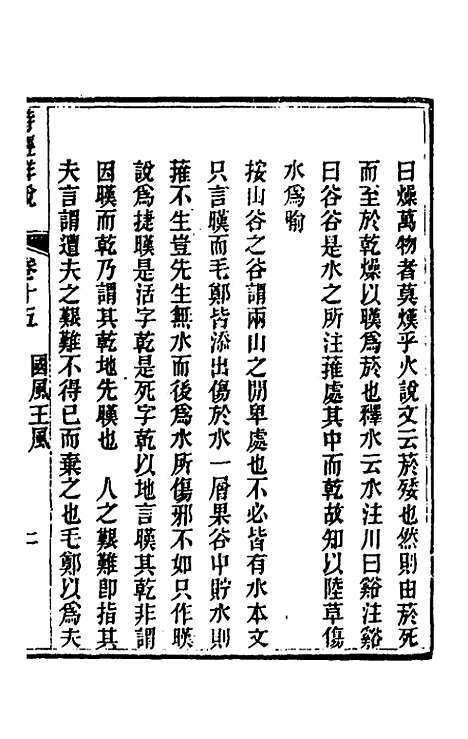 曰燥萬物者莫熯乎火說文云菸矮也然則由菸死
而至於乾燥以暵爲菸也釋水云水注川曰谿注谿
曰谷谷是水之所注蓷處其中而乾故知以陸草傷
水爲喻
按山谷之谷謂兩山之閒卑處也不必皆有水本文
只言暵而毛鄭皆添出傷於水一層果谷中貯水則
蓷不生豈先生無水而後爲水所傷邪不如只作暵
說爲捷暵是活字乾是死字乾以地言暵其乾非謂
因暵而乾乃謂其乾地先暵也　人之艱難即指其
夫言謂遭夫之艱難不得已而棄之也毛鄭以爲夫
詩經詳說　卷十五　國風王風　二